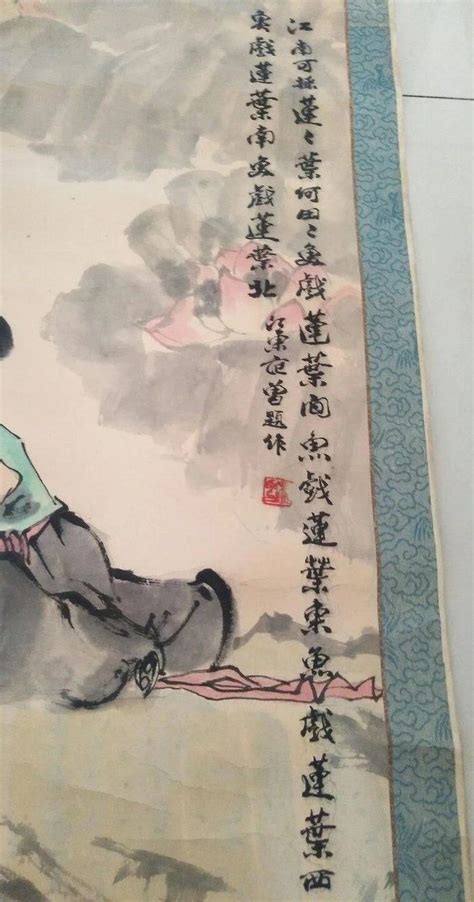 江南可採蓮々葉何田々魚戲蓮葉间魚戲蓮葉東魚戲蓮葉西
魚戲蓮葉南魚戲蓮葉北
江東范曾題作